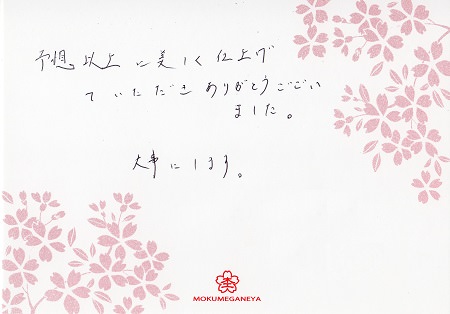 予想以上に美しく仕上げ
ていただきありがとうござい
ました。
大事にします。
MOKUMEGANEYA